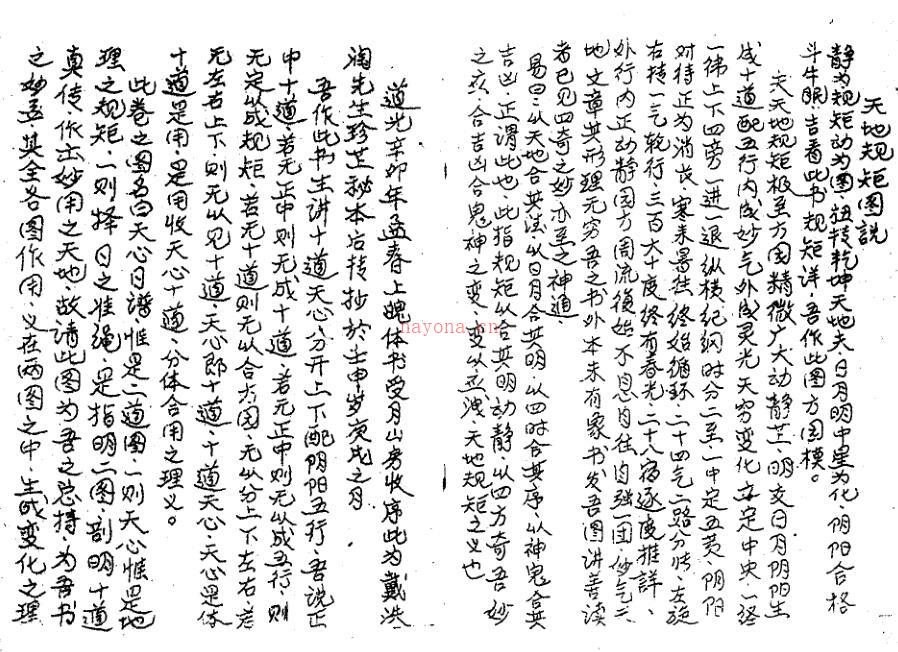 天地规矩图説
静为规矩动为图，扭转乾坤天地夫，日月明中星为化，阴阳合格
斗牛眠吉看此书规矩详，吾作此图方园模。
夫天地规矩极至方园精微广大动静芷，明交日月阴阳生
成十道配五行内成妙气外成灵光天穷变化，安定中央一经
一纬上下四旁一进一退纵横纪纲时分二至一中定五黄，阴阳
对待正为消戊，寒来暑往终始循环，二十四气二路分转，左旋
右转一气乾行，三百六十度终有春光，二十八宿逐度推详，
外行内正动静园方周流復始不息自往自强一团，妙气三
地文章其形理无穷吾之书外本未有象书发吾图讲善读
者已见四奇之妙亦至之神通，
易曰：以天地合其法，以日月合其明，以四时合其序，以神鬼合其
吉凶，正谓此也，此指规矩以合其明动静以四方奇吾妙
之玄，合吉凶合鬼神之变，变以无洩，天地规矩之义也
道光辛卯年孟春上魄体书受月山房收序此为戴洪
润先生珍芷秘本后转抄於壬申岁庚戌之月
吾作此书生讲十道天心分开上下配阴阳五行，吾说正
中十道若无正中则无成十道，若无正中则无从成五行，则
无定以成规矩，若无十道则无以合方园，无从分上下左右，若
无左右上下则无以见十道，天心郎十道，十道天心，天心是体
十道是用是用收天心十道，分体合用之理义。
此卷之图名曰天心日谱惟是二道图，一则天心惟是地
理之规矩，一则择日之准绳，是指明二图，剖明十道
真传作出妙用之天地，故请此图为吾之总持，为吾书
之妙孟其全各图作用，义在两图之中，生成变化之理
nayona.cn